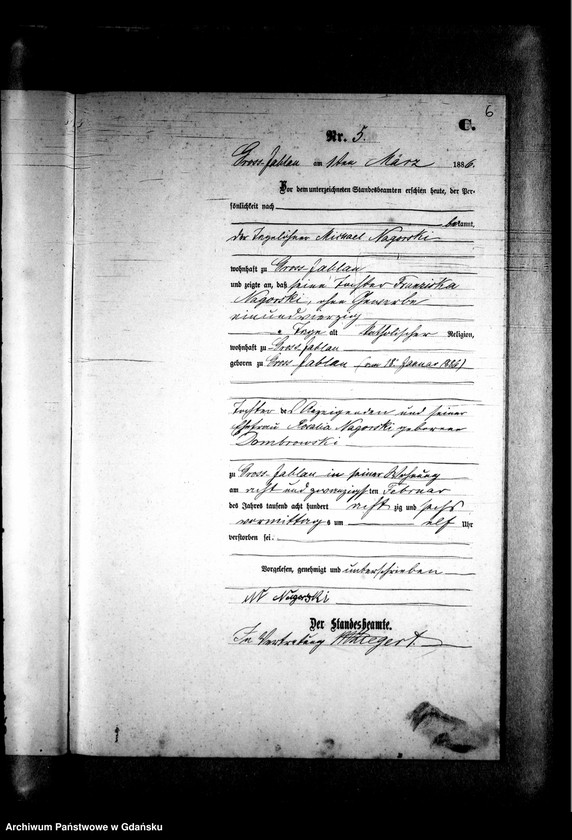 6
C.
Nr. 5.
Gross Jablau am 1ten März 1886.
Vor dem unterzeichneten Standesbeamten erschien heute, der Per-
sönlichkeit nach
bekannt,
der Tagelöhner Michael Nagorski
wohnhaft zu Gross Jablau
und zeigte an, daß seine Tochter Franziska
Nagorski, ohne Gewerbe
einundvierzig
Tage alt katholischer Religion,
wohnhaft zu Gross Jablau
geboren zu Gross Jablau (am 18. Januar 1886)
Tochter des Anzeigenden und seiner
Ehefrau Rosalia Nagorski geborenen
Dombrowski
zu Gross Jablau in seiner Wohnung
am acht und zwanzigsten Februar
des Jahres tausend acht hundert achtzig und sechs
vormittags um elf Uhr
verstorben sei.
Vorgelesen, genehmigt und unterschrieben
M Nagorski
Der Standesbeamte.
In Vertretung
Archiwum Państwowe w Gdańsku